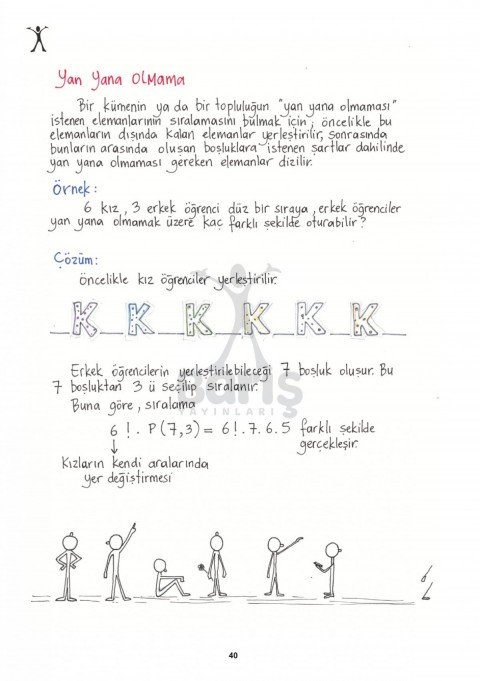 Yan Yana Olmama
Bir kümenin ya da bir topluluğun "yan yana olmaması"
istenen elemanlarının sıralamasını bulmak için; öncelikle bu
elemanların dışında kalan elemanlar yerleştirilir, sonrasında
bunların arasında oluşan boşluklara istenen şartlar dahilinde
yan yana olmaması gereken elemanlar dizilir.
Örnek:
6 kız, 3 erkek öğrenci düz bir sıraya, erkek öğrenciler
yan yana olmamak üzere kaç farklı şekilde oturabilir?
Çözüm:
öncelikle kız öğrenciler yerleştirilir.
K K K K K K
Erkek öğrencilerin yerleştirilebileceği 7 boşluk oluşur. Bu
7 boşluktan 3 ü seçilip sıralanır.
Buna göre, sıralama
6! . P(7,3) = 6!.7.6.5 farklı şekilde
gerçekleşir.
Kızların kendi aralarında
yer değiştirmesi
Barış
YAYINLARI
40